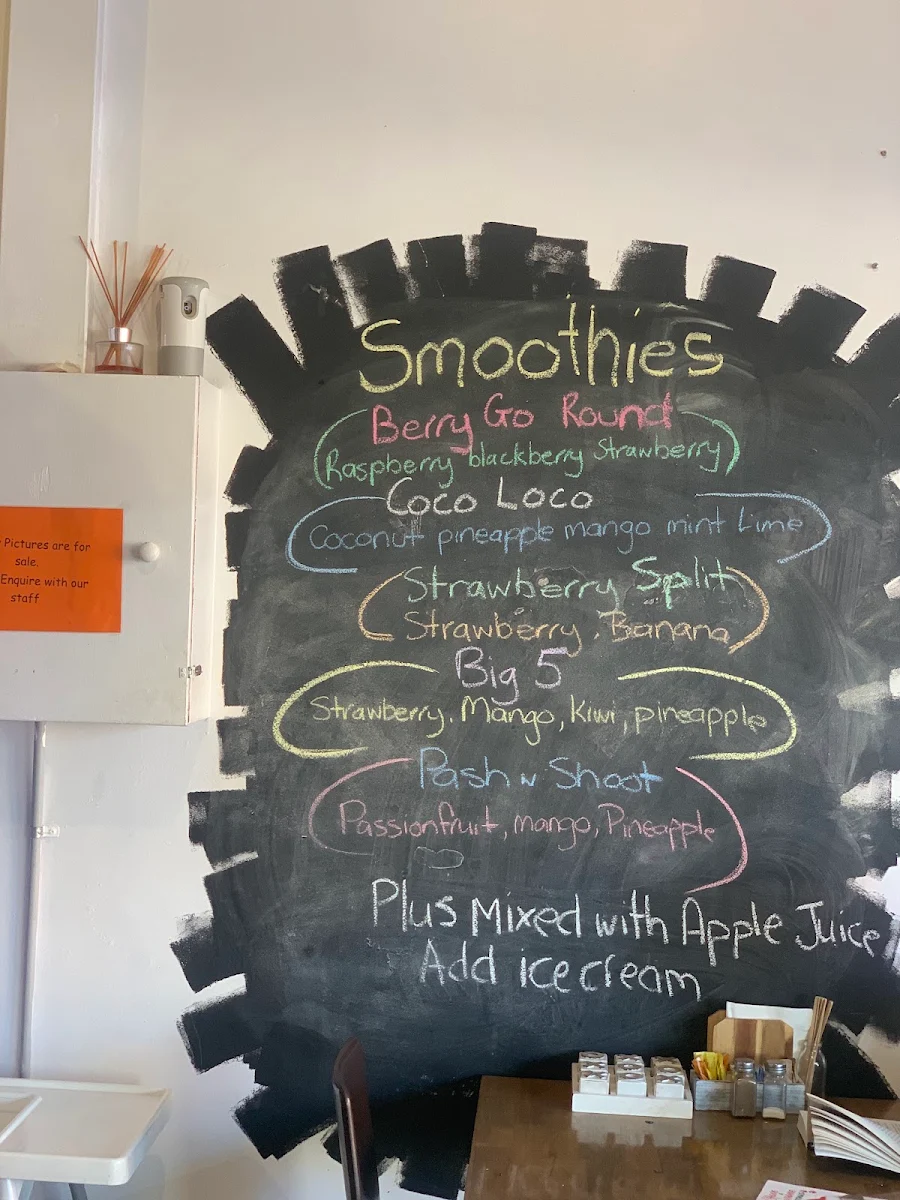 Smoothies
Berry Go Round
(Raspberry blackberry Strawberry)
Coco Loco
(Coconut pineapple mango mint Lime)
(Strawberry Split
Strawberry, Banana)
Big 5
(Strawberry, Mango, Kiwi, pineapple)
Pash n Shoot
(Passionfruit, mango, Pineapple)
Plus Mixed with Apple Juice
Add ice cream
Pictures are for
sale.
Enquire with our
staff